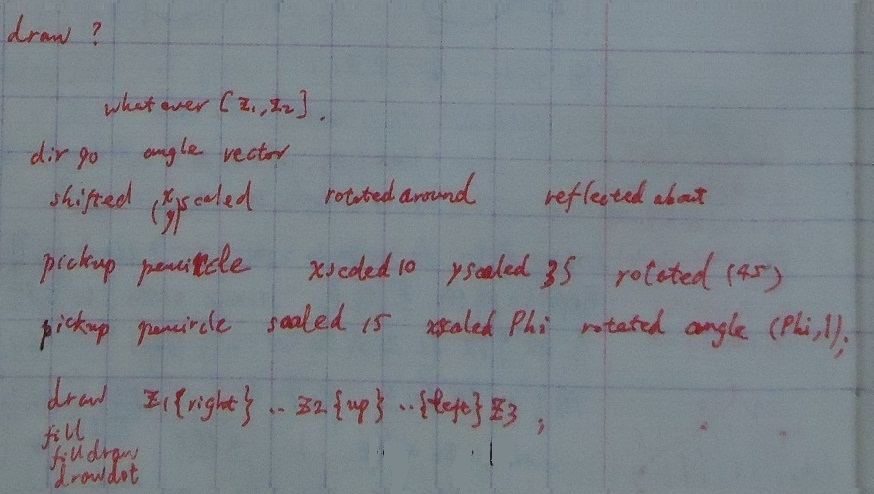 draw ?
whatever [z1,z2].
dir 90 angle vector
shifted (x/y)scaled rotatedaround reflectedabout
pickup pencircle xscaled 10 yscaled 35 rotated (45)
pickup pencircle scaled 15 xscaled Phi rotated angle (Phi,1);
draw z1{right} .. z2{up} ..{left}z3;
fill
filldraw
drawdot